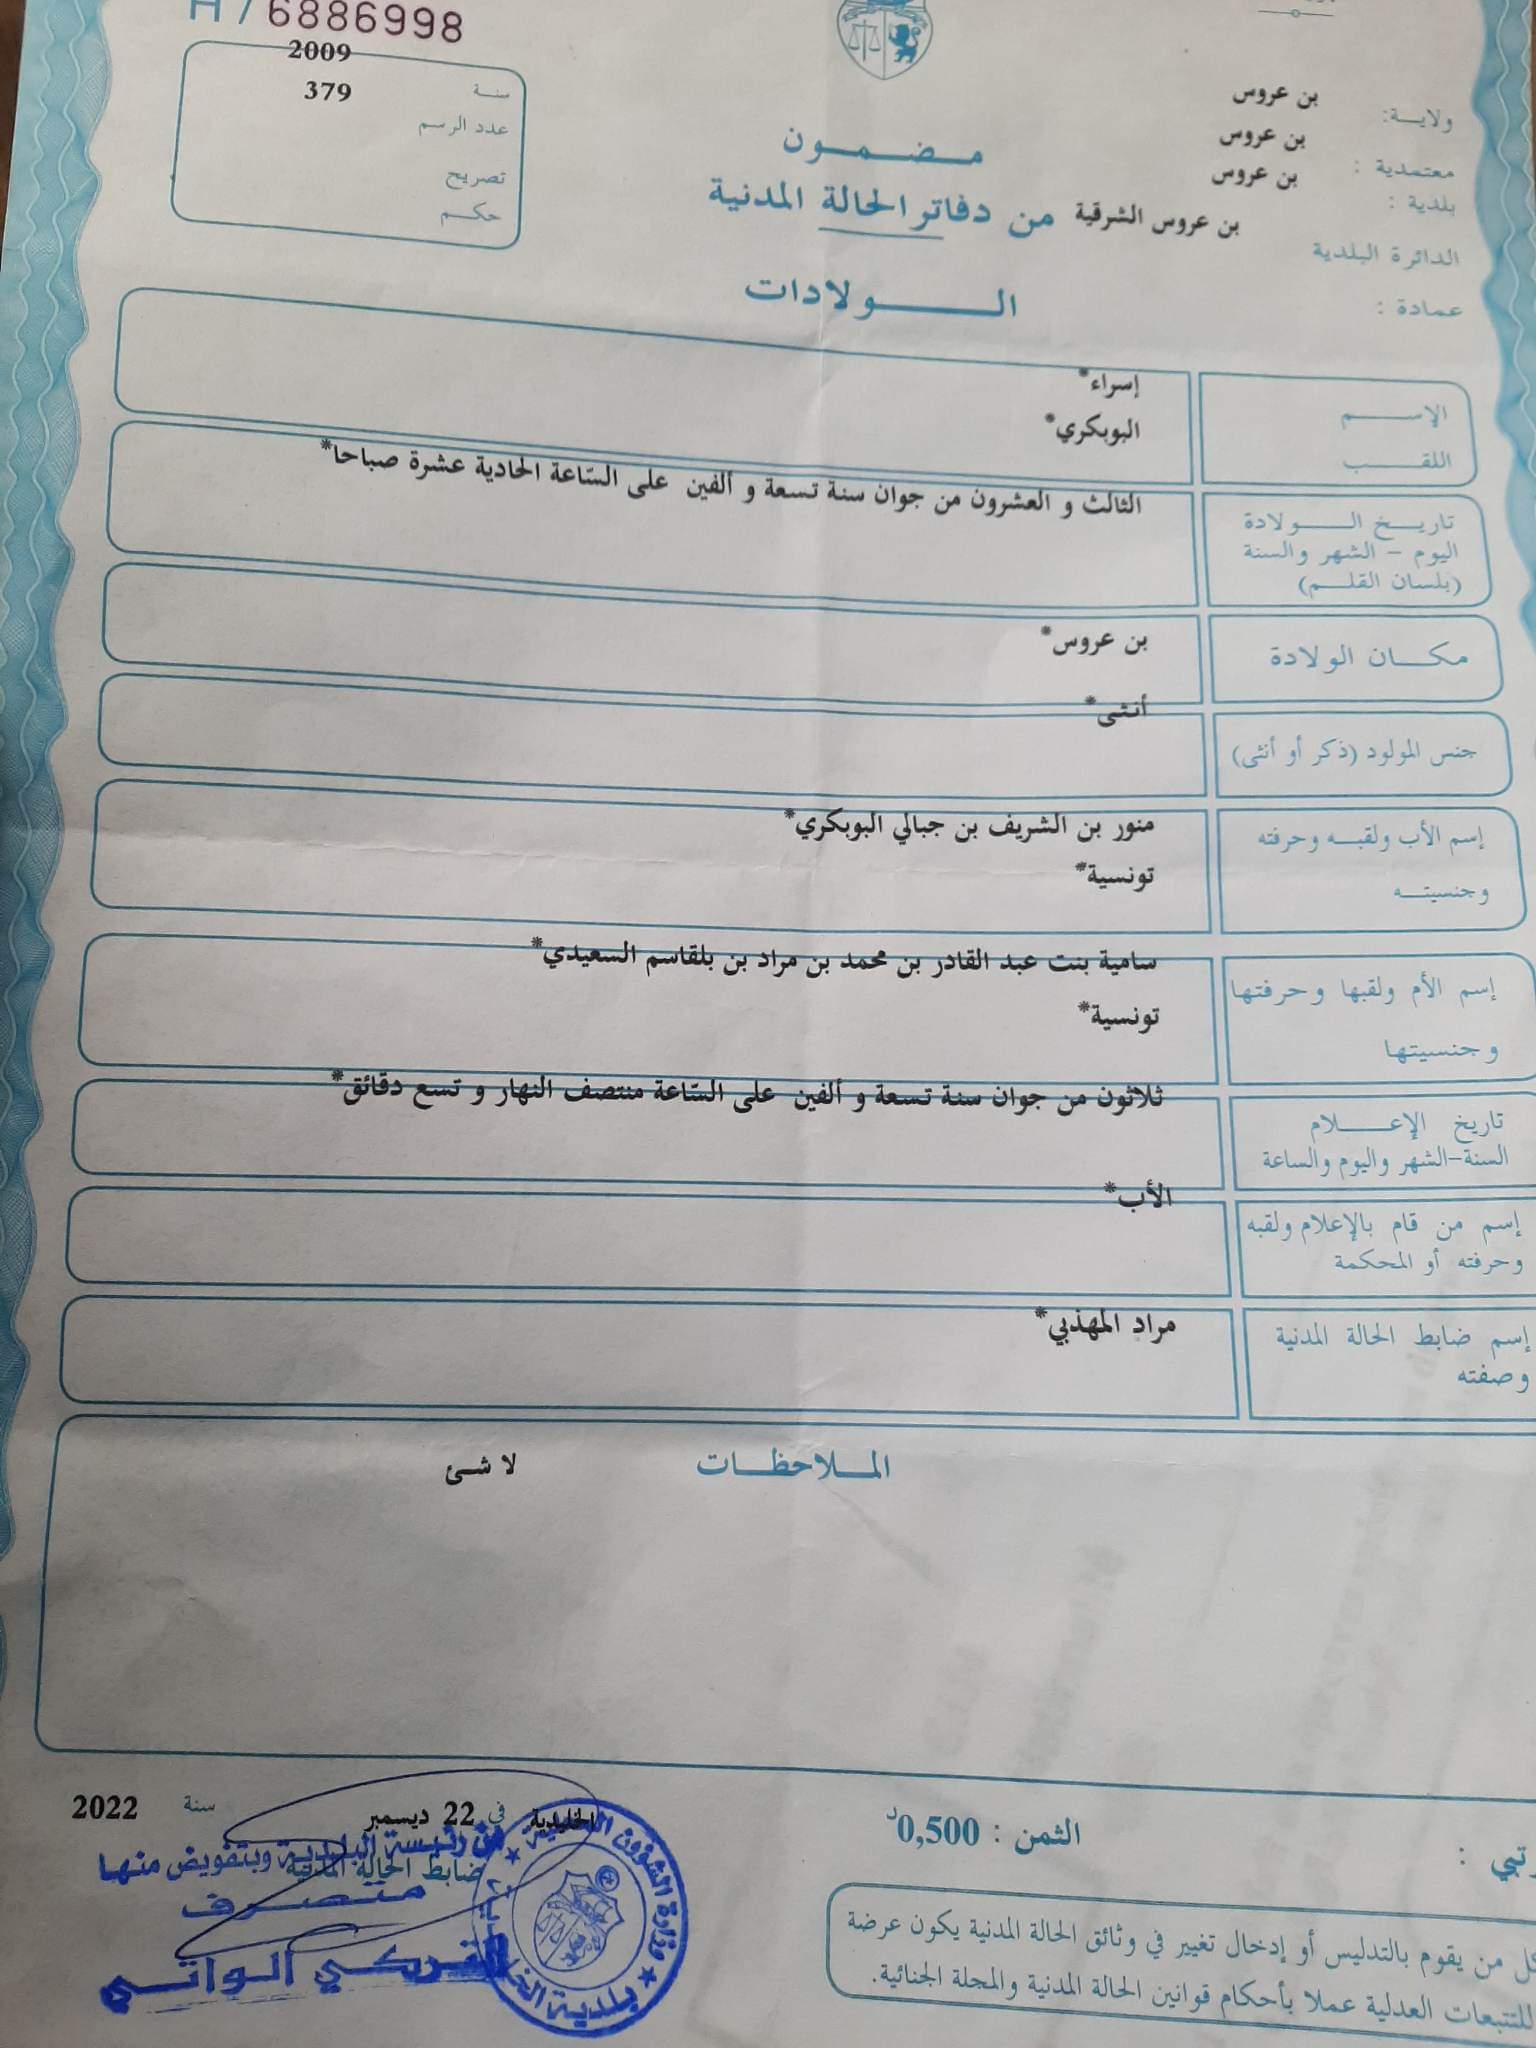 H / 6886998
2009
سنة
379
عدد الرسم
تصريح
حكم
ولاية: بن عروس
معتمدية : بن عروس
بلدية : بن عروس
الدائرة البلدية بن عروس الشرقية
عمادة :
مضمون
من دفاتر الحالة المدنية
الولادات
الإسم إسراء*
اللقب البوبكري*
تاريخ الولادة
اليوم - الشهر والسنة
(بلسان القلم)
الثالث و العشرون من جوان سنة تسعة و ألفين على السّاعة الحادية عشرة صباحا*
مكان الولادة بن عروس*
جنس المولود (ذكر أو أنثى) أنثى*
إسم الأب ولقبه وحرفته منور بن الشريف بن جبالي البوبكري*
وجنسيته تونسية*
إسم الأم ولقبها وحرفتها سامية بنت عبد القادر بن محمد بن مراد بن بلقاسم السعيدي*
وجنسيتها تونسية*
تاريخ الإعلام
السنة-الشهر واليوم والساعة
ثلاثون من جوان سنة تسعة و ألفين على السّاعة منتصف النهار و تسع دقائق*
إسم من قام بالإعلام ولقبه
وحرفته أو المحكمة
الأب*
إسم ضابط الحالة المدنية
وصفته
مراد المهذبي*
الملاحظات لا شئ
الخليدية في 22 ديسمبر سنة 2022
ضابط الحالة المدنية
عن رئيسة البلدية وبتفويض منها
متصرف
الواتي
وزارة الشؤون المحلية
الثمن : 0,500د
من يقوم بالتدليس أو إدخال تغيير في وثائق الحالة المدنية يكون عرضة
للتتبعات العدلية عملا بأحكام قوانين الحالة المدنية والمجلة الجنائية.